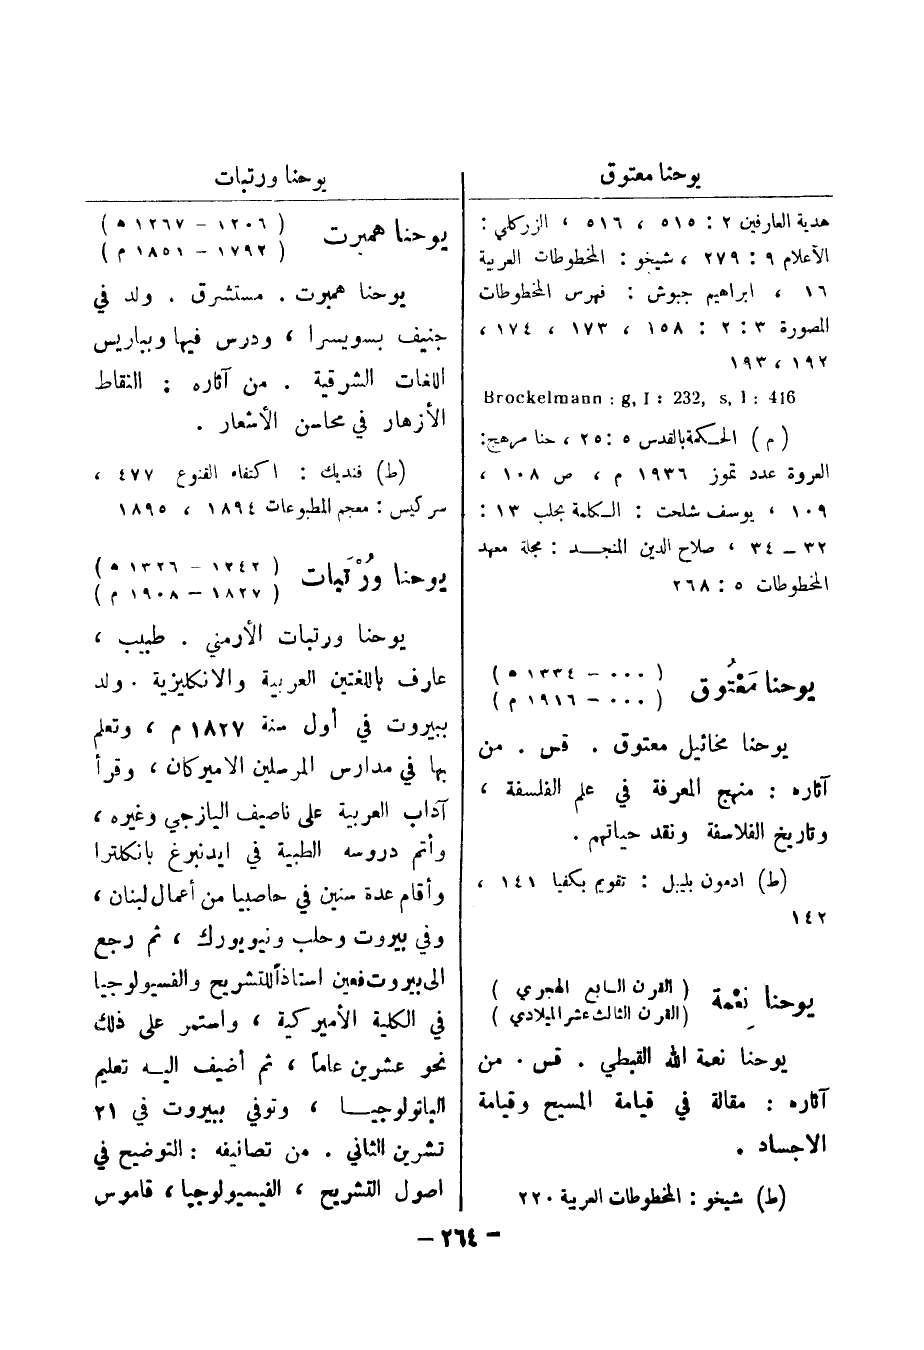 يوحنا معتوق
هدية العارفين ٢ : ٥١٥ ، ٥١٦ ، الزركلي :
الأعلام ٩ : ٢٧٩ ، شيخو : المخطوطات العربية
١٦ ، ابراهيم جبوش : فهرس المخطوطات
المصورة ٣ : ٢ : ١٥٨ ، ١٧٣ ، ١٧٤ ،
١٩٢ ، ١٩٣
Brockelmann : g, I : 232, s, I : 416
( م ) الحكمة بالقدس ٥ : ٢٥ ، حنا مرهج:
العروة عدد تموز ١٩٣٦ م ، ص ١٠٨ ،
١٠٩ ، يوسف شلحت : الكلمة بحلب ١٣ :
٣٢ – ٣٤ ، صلاح الدين المنجد : مجلة معهد
المخطوطات ٥ : ٢٦٨
يوحنا مَعْتُوق ( ٠٠٠ – ١٣٣٤ ه )
( ٠٠٠ – ١٩١٦ م )
يوحنا مخائيل معتوق . قس . من
آثاره : منهج المعرفة في علم الفلسفة ،
وتاريخ الفلاسفة ونقد حياتهم .
(ط) ادمون بليبل : تقويم بكفيا ١٤١ ،
١٤٢
يوحنا نِعْمة ( القرن السابع الهجري )
( القرن الثالث عشر الميلادي )
يوحنا نعمة الله القبطي . قس . من
آثاره : مقالة في قيامة المسيح وقيامة
الاجساد .
(ط) شيخو : المخطوطات العربية ٢٢٠
يوحنا ورتبات
يوحنا همبرت ( ١٢٠٦ – ١٢٦٧ ه )
( ١٧٩٢ – ١٨٥١ م )
يوحنا همبرت . مستشرق . ولد في
جنيف بسويسرا ، ودرس فيها وبباريس
اللغات الشرقية . من آثاره : التقاط
الأزهار في محاسن الأشعار .
(ط) فنديك : اكتفاء القنوع ٤٧٧ ،
سركيس : معجم المطبوعات ١٨٩٤ ، ١٨٩٥
يوحنا وُرْتَبات ( ١٢٤٢ – ١٣٢٦ ه )
( ١٨٢٧ – ١٩٠٨ م )
يوحنا ورتبات الأرمني . طبيب ،
عارف باللغتين العربية والانكليزية . ولد
ببيروت في أول سنة ١٨٢٧ م ، وتعلم
بها في مدارس المرسلين الاميركان ، وقرأ
آداب العربية على ناصيف اليازجي وغيره ،
وأتم دروسه الطبية في ايدنبرغ بانكلترا
وأقام عدة سنين في حاصبيا من أعمال لبنان ،
وفي بيروت وحلب ونيويورك ، ثم رجع
الى بيروت فعين استاذاً للتشريح والفسيولوجيا
في الكلية الأميركية ، واستمر على ذلك
نحو عشرين عاماً ، ثم أضيف اليه تعليم
الباثولوجيا ، وتوفي ببيروت في ٢١
تشرين الثاني . من تصانيفه : التوضيح في
اصول التشريح ، الفيسيولوجيا ، قاموس
– ٢٦٤ –